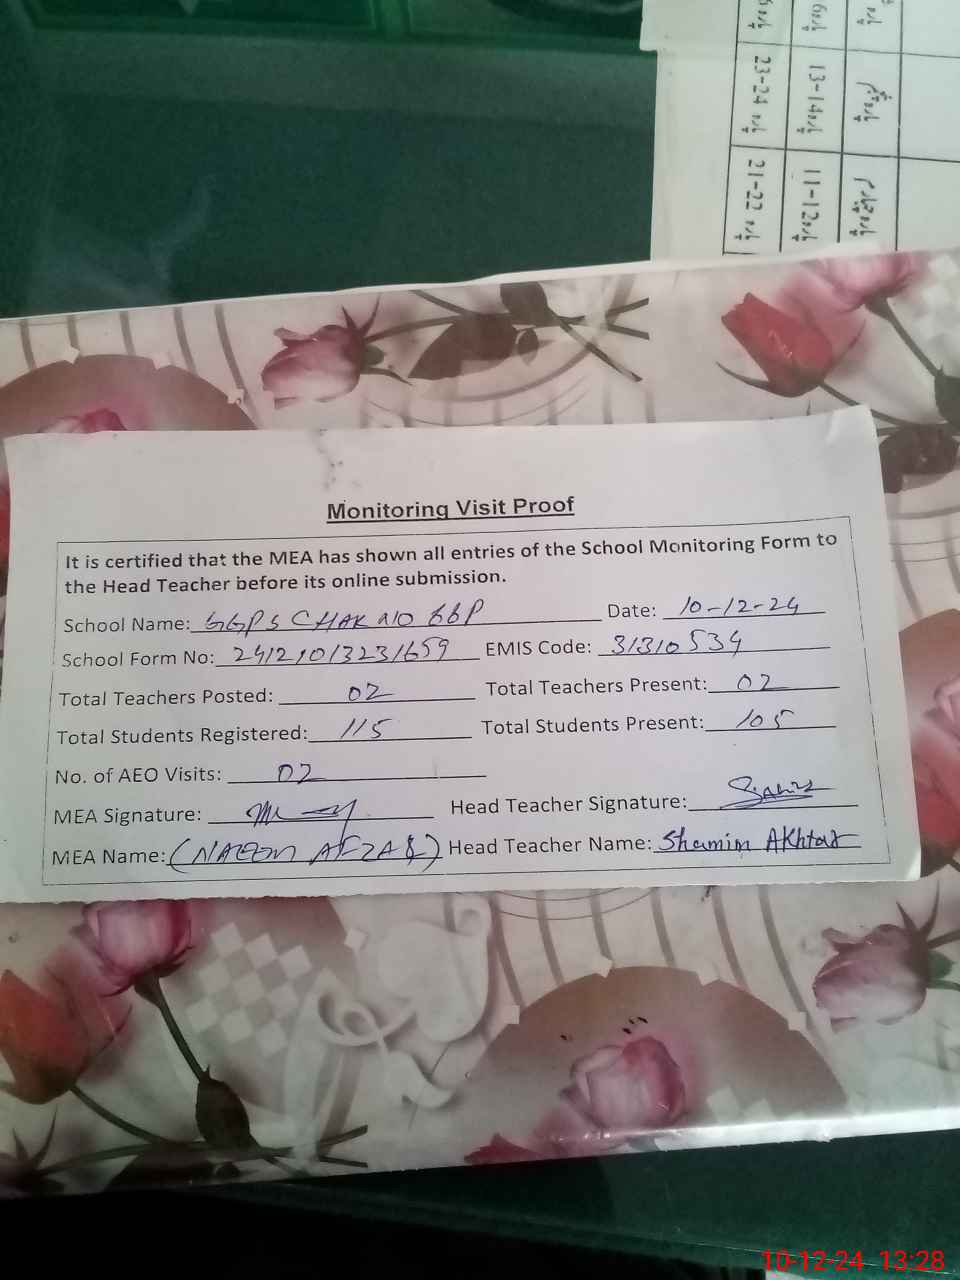 6پارہ
23-24 پارہ
13-14پارہ
21-22 پارہ
11-12پارہ
Monitoring Visit Proof
It is certified that the MEA has shown all entries of the School Monitoring Form to
the Head Teacher before its online submission.
School Name: GGPS CHAK NO 66P Date: 10-12-24
School Form No: 24121013231659 EMIS Code: 31310534
Total Teachers Posted: 02 Total Teachers Present: 02
Total Students Registered: 115 Total Students Present: 105
No. of AEO Visits: 02
MEA Signature: Head Teacher Signature:
MEA Name: (NAEEM AFZAL) Head Teacher Name: Shamim AKhtar
10-12-24 13:28